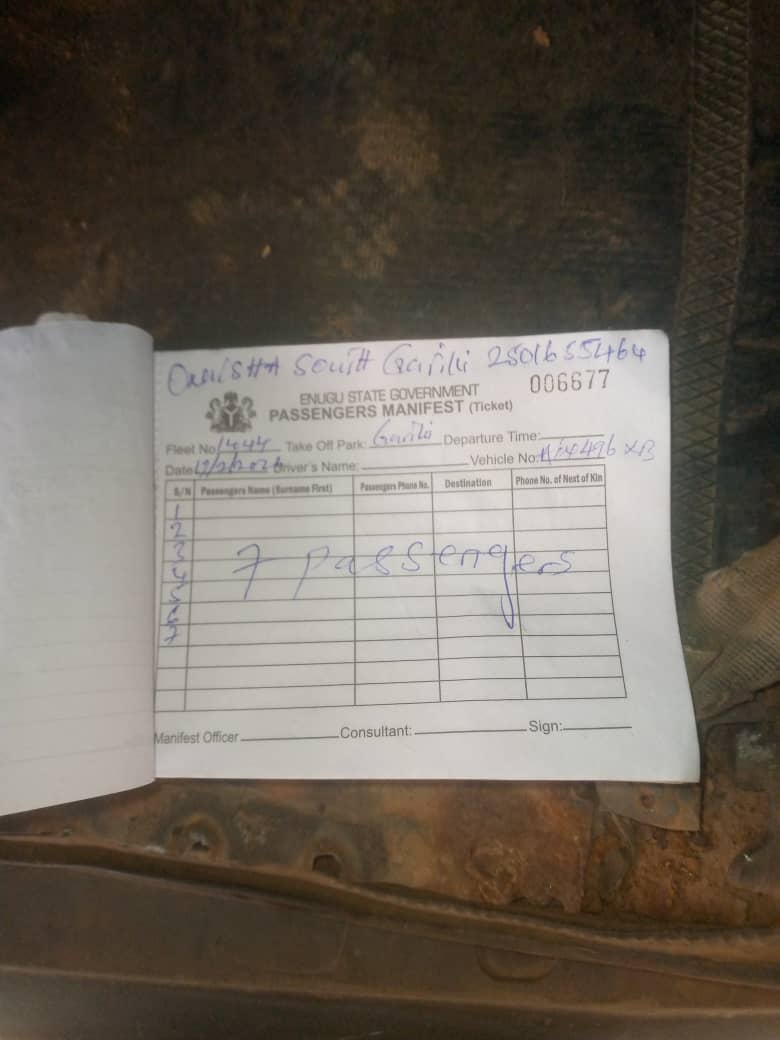 Onisha South Gariki 2501655464
ENUGU STATE GOVERNMENT 006677
PASSENGERS MANIFEST (Ticket)
Fleet No 1444 Take Off Park: Gariki Departure Time:
Date Driver's Name: Vehicle No: XB
S/N Passengers Name (Surname First) Passengers Phone No. Destination Phone No. of Next of Kin
1
2
3
4
5
6
7
7 passengers
Manifest Officer Consultant: Sign: